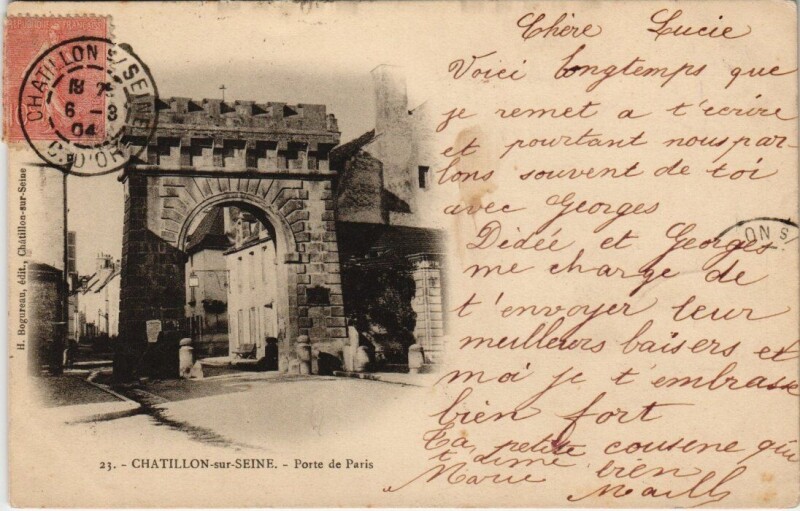 CHATILLON S/ SEINE
6 -3
04
C. D'OR
H. Bogureau, édit., Châtillon-sur-Seine
23. - CHATILLON-sur-SEINE. - Porte de Paris
Chère Lucie
Voici longtemps que
je remet a t'écrire
et pourtant nous par-
lons souvent de toi
avec Georges
Dédée et Georges
me charge de
t'envoyer leur
meilleurs baisers et
moi je t'embrasse
bien fort
Ta petite cousene qui
t'aime bien
Marie Mailly
ON S